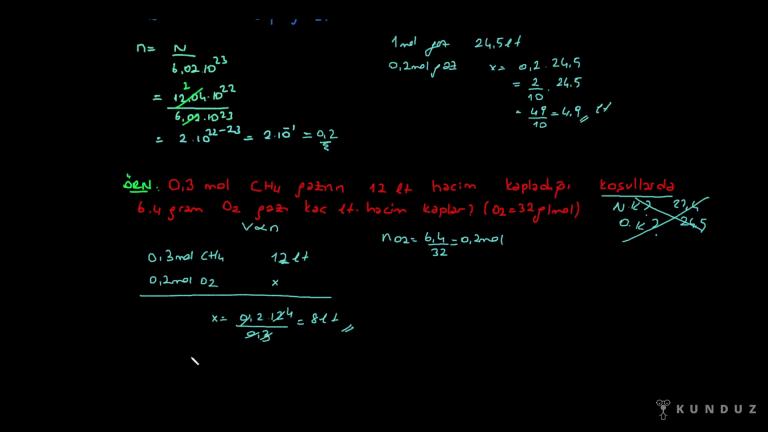 n = N / 6,02.10²³
= 12,04.10²² / 6,02.10²³ 2
= 2.10²²⁻²³ = 2.10⁻¹ = 0,2
1 mol gaz 24,5 lt
0,2 mol gaz x = 0,2 . 24,5
= 2/10 . 24,5
= 49/10 = 4,9 lt
ÖRN: 0,3 mol CH4 gazının 12 lt hacim kapladığı koşullarda
6.4 gram O2 gazı kaç lt. hacim kaplar? (O2=32 g/mol)
N.K? 22,4
O.K? 24,5
V∝n
nO2 = 6,4/32 = 0,2 mol
0,3 mol CH4 12 lt
0,2 mol O2 x
x = 0,2 . 12 4 / 0,3 = 8 lt
KUNDUZ